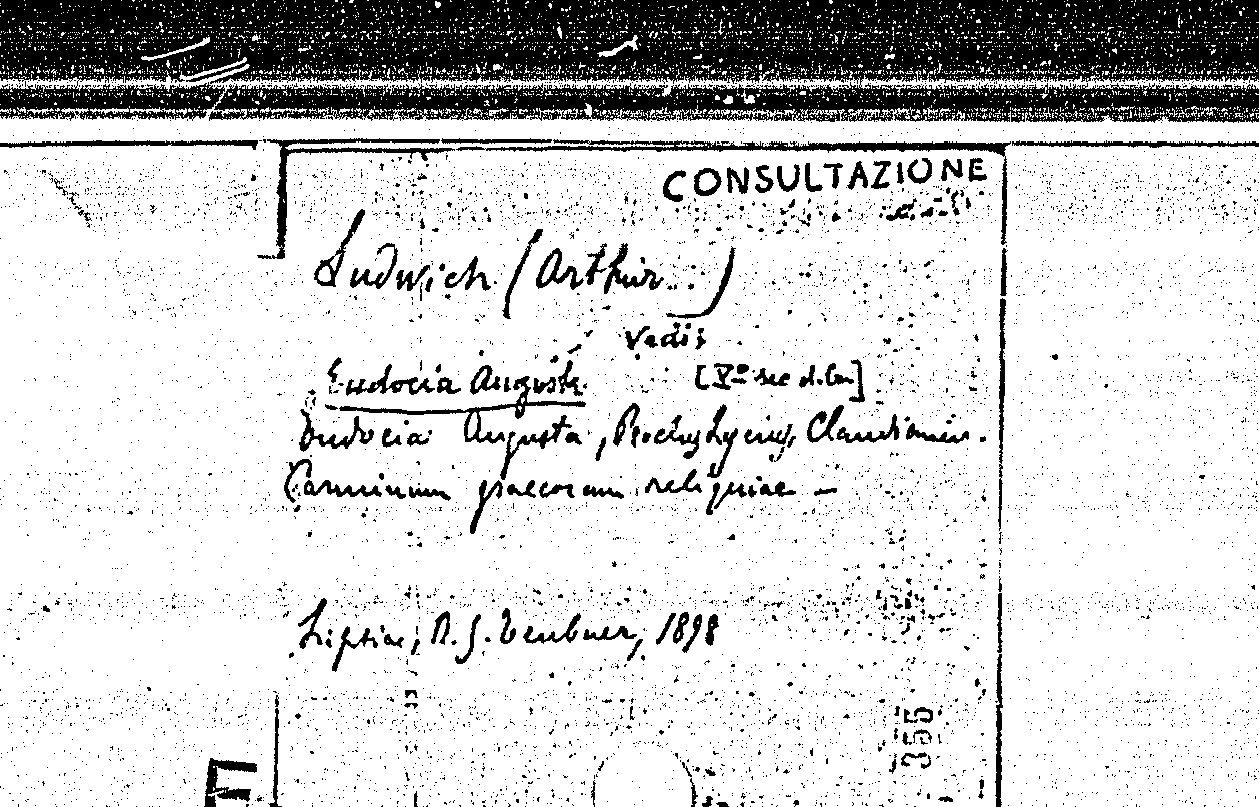 CONSULTAZIONE
Ludwich (Arthur...)
Vedi:
Eudocia Augusta [Vº sec d.Cr.]
Eudocia Augusta, Claudianus.
Carminum graecorum reliquiae —
Lipsiae, B. G. Teubner, 1898
355